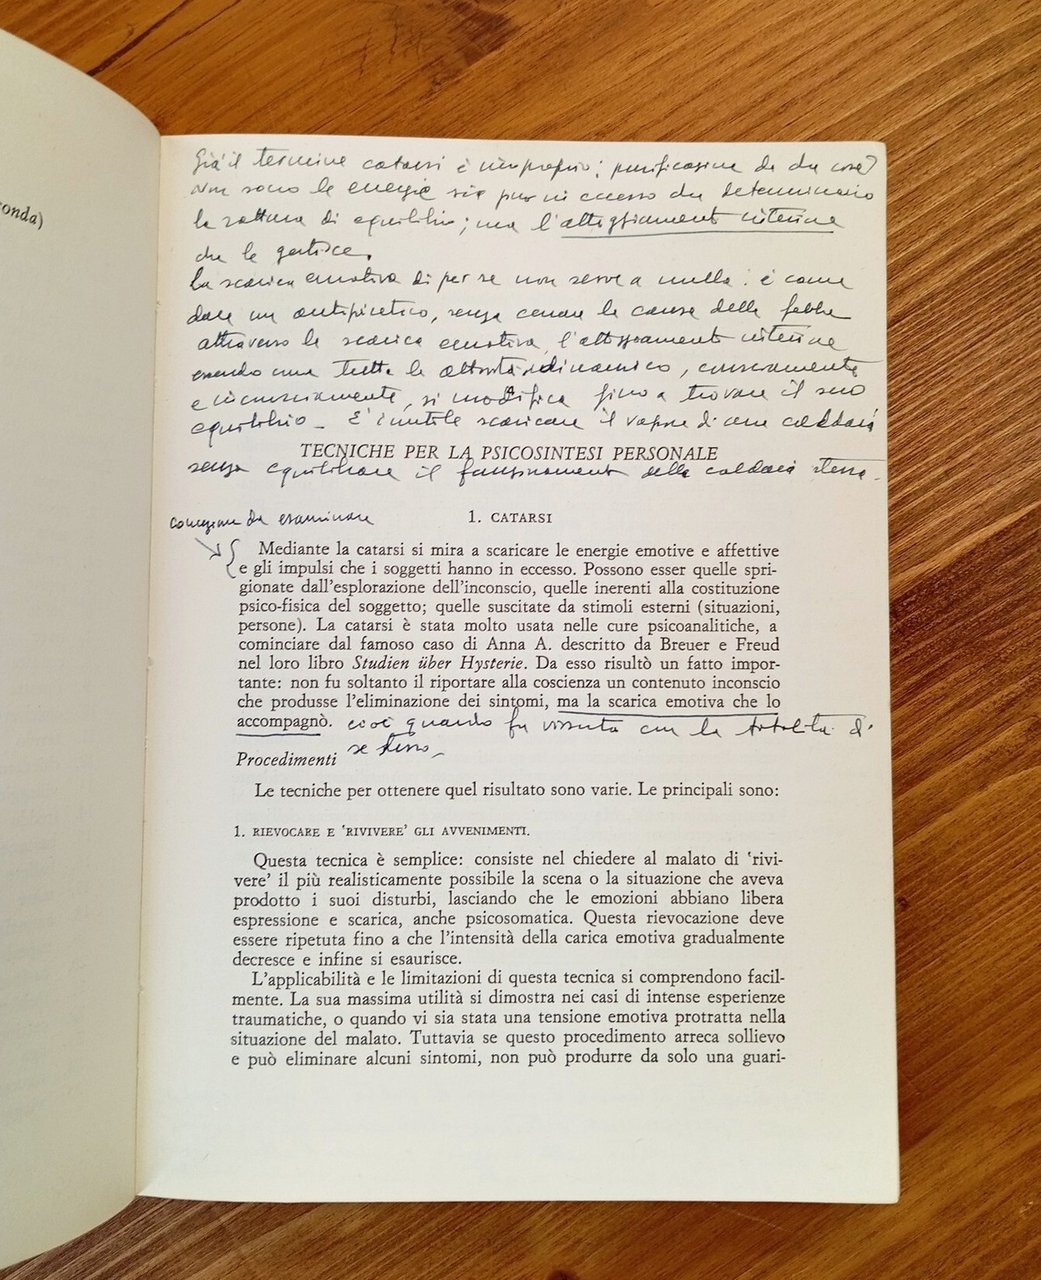 onda)
Già il termine catarsi è improprio; purificazione da che cosa?
Non sono le energie sia pur in eccesso che determinano
la rottura di equilibrio; ma l'atteggiamento interiore
che le gestisce.
La scarica emotiva di per se non serve a nulla: è come
dare un antipiretico, senza curare la causa della febbre
attraverso la scarica emotiva, l'atteggiamento interiore
essendo una tutte le attività dinamico, consciamente
e inconsciamente, si modifica fino a trovare il suo
equilibrio - E' inutile scaricare il vapore di una caldaia
TECNICHE PER LA PSICOSINTESI PERSONALE
senza equilibrare il funzionamento della caldaia stessa.
concezione da esaminare
1. CATARSI
Mediante la catarsi si mira a scaricare le energie emotive e affettive
e gli impulsi che i soggetti hanno in eccesso. Possono esser quelle spri-
gionate dall'esplorazione dell'inconscio, quelle inerenti alla costituzione
psico-fisica del soggetto; quelle suscitate da stimoli esterni (situazioni,
persone). La catarsi è stata molto usata nelle cure psicoanalitiche, a
cominciare dal famoso caso di Anna A. descritto da Breuer e Freud
nel loro libro Studien über Hysterie. Da esso risultò un fatto impor-
tante: non fu soltanto il riportare alla coscienza un contenuto inconscio
che produsse l'eliminazione dei sintomi, ma la scarica emotiva che lo
accompagnò. cioè quando fu vissuta con la totalità di
se stesso -
Procedimenti
Le tecniche per ottenere quel risultato sono varie. Le principali sono:
1. RIEVOCARE E 'RIVIVERE' GLI AVVENIMENTI.
Questa tecnica è semplice: consiste nel chiedere al malato di 'rivi-
vere' il più realisticamente possibile la scena o la situazione che aveva
prodotto i suoi disturbi, lasciando che le emozioni abbiano libera
espressione e scarica, anche psicosomatica. Questa rievocazione deve
essere ripetuta fino a che l'intensità della carica emotiva gradualmente
decresce e infine si esaurisce.
L'applicabilità e le limitazioni di questa tecnica si comprendono facil-
mente. La sua massima utilità si dimostra nei casi di intense esperienze
traumatiche, o quando vi sia stata una tensione emotiva protratta nella
situazione del malato. Tuttavia se questo procedimento arreca sollievo
e può eliminare alcuni sintomi, non può produrre da solo una guari-